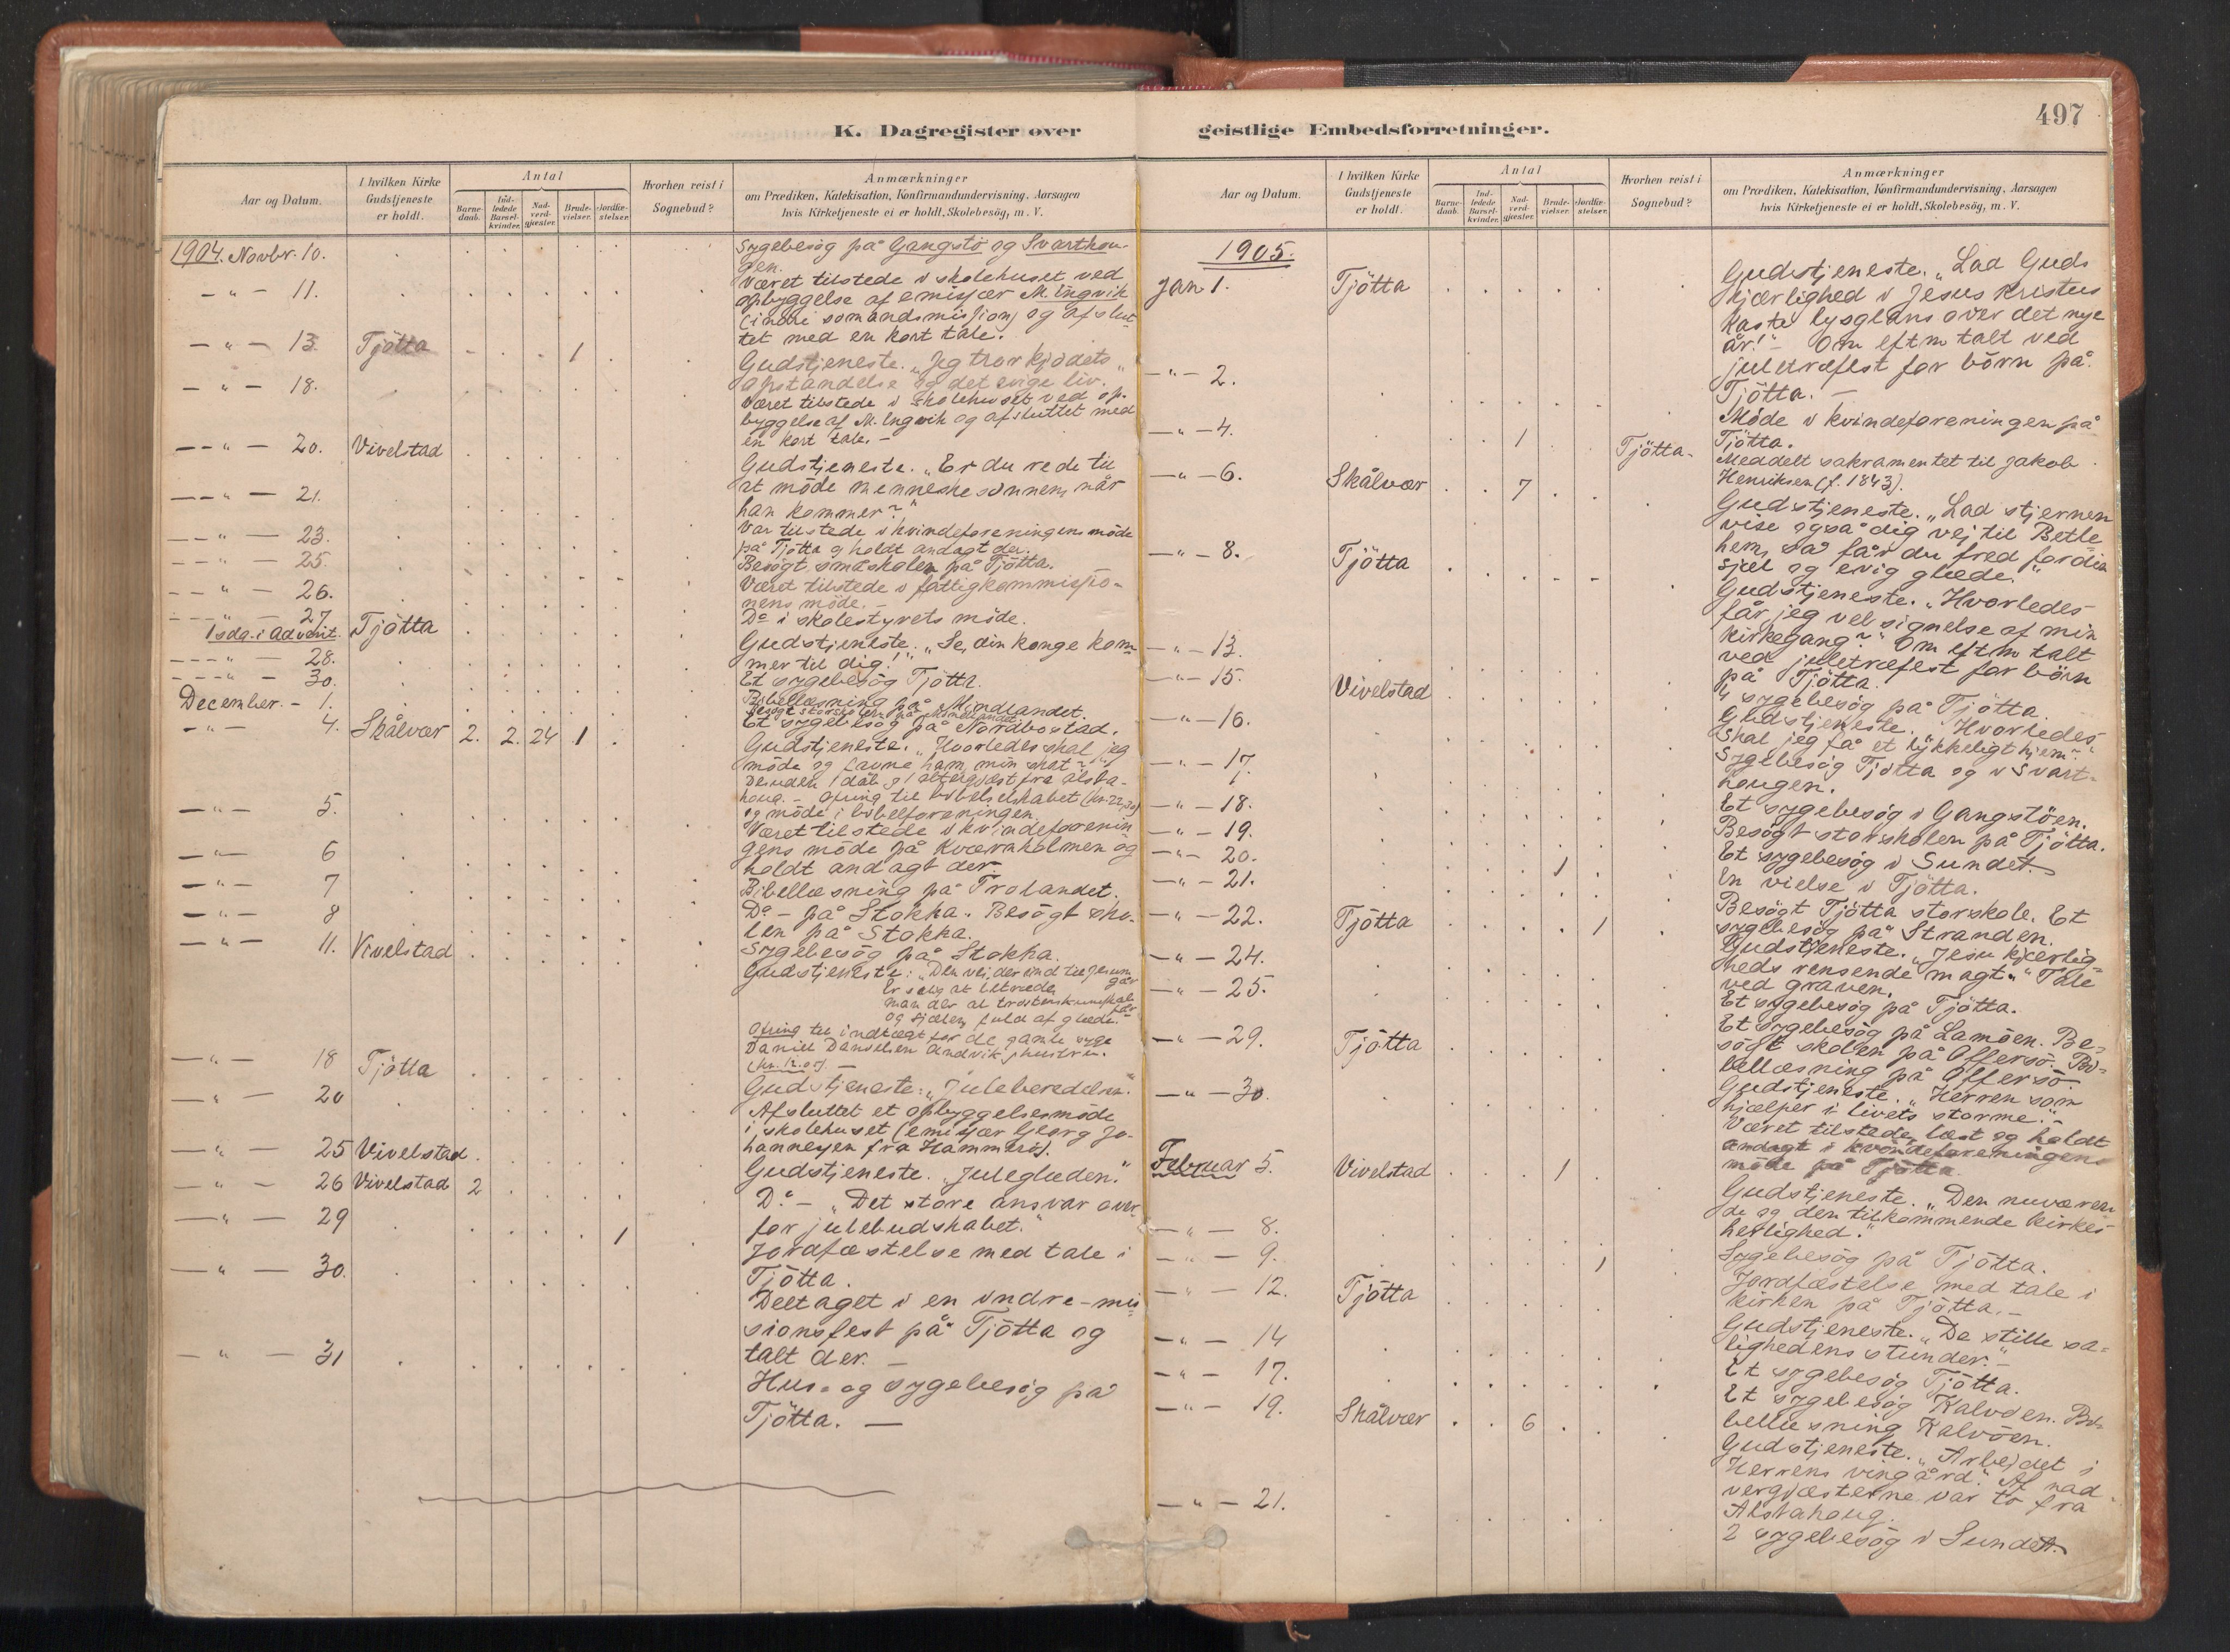 K. Dagregister over
Aar og Datum.
I hvilken Kirke
Gudstjeneste
er holdt.
Antal
Barne-
daab.
Ind-
ledede
Barsel-
kvinder.
Nad-
verd-
gjæster.
Brude-
vielser.
Jordfæ-
stelser.
Hvorhen reist i
Sognebud?
Anmærkninger
om Prædiken, Katekisation, Konfirmandundervisning, Aarsagen
hvis Kirketjeneste ei er holdt, Skolebesög, m. V.
1904. Novbr. 10.
Sygebesøg på Gangstö og Svarthou-
gen.
- " - 11.
Været tilstede i skolehuset ved
opbyggelse af emisjær M. Ingvik
(indre somandsmisjion) og afslut-
tet med en kort tale.
- " - 13. Tjötta 1
Gudstjeneste. "Jeg tror kjödets
opstandelse og det evige liv."
- " - 18.
Været tilstede i skolehuset ved op-
byggelse af M. Ingvik og afsluttet med
en kort tale. -
- " - 20. Vivelstad
Gudstjeneste. "Er du rede til
at möde menneskesönnen, når
han kommer?"
- " - 21.
Var tilstede i kvindeforeningens möde
på Tjötta og holdt andagt der.
- " - 23.
Besögt småskolen på Tjötta.
- " - 25.
Været tilstede i fattigkommisjio-
nens möde. -
- " - 26.
Do i skolestyrets möde.
- " - 27.
1 sdg. i Advent. Tjötta
Gudstjeneste. "Se, din konge kom-
mer til dig!"
- " - 28.
Et sygebesög Tjötta.
- " - 30.
Bibellæsning på Mindlandet.
Besögt storskolen på Mindlandet.
December. - 1.
Et sygebesög på Nordbostad.
- " - 4. Skålvær 2. 2. 24 1
Gudstjeneste. "Hvorledes skal jeg
möde og favne ham, min skat?"
Desuden 1 dåb og 1 altergjæst fra Alsta-
houg. - Ofring til bibelselskabet (kr. 22,30)
og möde i bibelforeningen.
- " - 5.
Været tilstede i kvindeforenin-
gens möde på Kværnholmen og
holdt andagt der.
- " - 6
Bibellæsning på Trolandet.
- " - 7
Do - på Stokka. Besögt sko-
len på Stokka.
- " - 8
Sygebesög på Stokka.
- " - 11. Vivelstad
Gudstjeneste: "Den vei, der ind til Jesum går
Er salig at betræde,
man der al tröstens kundskab får
og sjælen fuld af glæde."
Ofring til indtægt for de gamle syge
Daniel Danielsen Andvik og hustru.
(kr. 12.05). -
- " - 18 Tjötta
Gudstjeneste: "Juleberedelsen."
- " - 20
Afsluttet et opbyggelsesmöde
i skolehuset (emisjær Georg Jo-
hannesen fra Hammerö).
- " - 25 Vivelstad
Gudstjeneste. "Juleglæden."
- " - 26 Vivelstad 2
Do - "Det store ansvar over-
for julebudskabet."
- " - 29 1
Jordfæstelse med tale i
Tjötta.
- " - 30.
Deltaget i en indre-mis-
sionsfest på Tjötta og
talt der. -
- " - 31
Hus- og sygebesög på
Tjötta. -
497
geistlige Embedsforretninger.
Aar og Datum.
I hvilken Kirke
Gudstjeneste
er holdt.
Antal
Barne-
daab.
Ind-
ledede
Barsel-
kvinder.
Nad-
verd-
gjæster.
Brude-
vielser.
Jordfæ-
stelser.
Hvorhen reist i
Sognebud?
Anmærkninger
om Prædiken, Katekisation, Konfirmandundervisning, Aarsagen
hvis Kirketjeneste ei er holdt, Skolebesög, m. V.
1905.
Jan 1. Tjötta
Gudstjeneste. "Lad Guds
kjærlighed i Jesus Kristus
kaste lysglans over det nye
år!" - Om eftm talt ved
juletræfest for börn på
Tjötta. -
- " - 2.
Möde i kvindeforeningen på
Tjötta.
- " - 4. 1 Tjötta.
Meddelt sakramentet til Jakob
Henriksen (f. 1843).
- " - 6. Skålvær 7
Gudstjeneste. "Lad stjernen
vise også dig vej til Betle-
hem, så får du fred for din
sjæl og evig glæde."
- " - 8. Tjötta
Gudstjeneste. "Hvorledes
får jeg velsignelse af min
kirkegang?" Om eftm talt
ved juletræfest for börn
på Tjötta.
- " - 13.
4 sygebesög på Tjötta.
- " - 15. Vivelstad
Gudstjeneste. "Hvorledes
skal jeg få et lykkeligt hjem?"
- " - 16.
Sygebesög Tjötta og i Svart-
hougen.
- " - 17.
Et sygebesög i Gangstöen.
- " - 18.
Besögt storskolen på Tjötta.
- " - 19.
Et sygebesög i Sundet.
- " - 20. 1
En vielse i Tjötta.
- " - 21.
Besögt Tjötta storskole. Et
sygebesög på Stranden.
- " - 22. Tjötta 1
Gudstjeneste. "Jesu kjærlig-
heds rensende magt." Tale
ved graven.
- " - 24.
Et sygebesög på Tjötta.
- " - 25.
Et sygebesög på Lamöen. Be-
sögt skolen på Offersö. Bi-
bellæsning på Offersö.
- " - 29. Tjötta
Gudstjeneste. "Herren som
hjælper i livets storme."
- " - 30.
Været tilstede, læst og holdt
andagt i kvindeforeningens
möde på Tjötta.
Februar 5. Vivelstad 1
Gudstjeneste. "Den nuværen-
de og den tilkommende kirkes
herlighed."
- " - 8.
Sygebesög på Tjötta.
- " - 9. 1
Jordfæstelse med tale i
kirken på Tjötta. -
- " - 12. Tjötta
Gudstjeneste. "De stille sa-
lighedens stunder." -
- " - 14
Et sygebesög Tjötta.
- " - 17.
Et sygebesög Kalvöen. Bi-
bellæsning Kalvöen.
- " - 19. Skålvær 6
Gudstjeneste. "Arbejdet i
Herrens vingård." Af nad-
vergjæsterne var to fra
Alstahoug.
- " - 21.
2 sygebesög i Sundet.